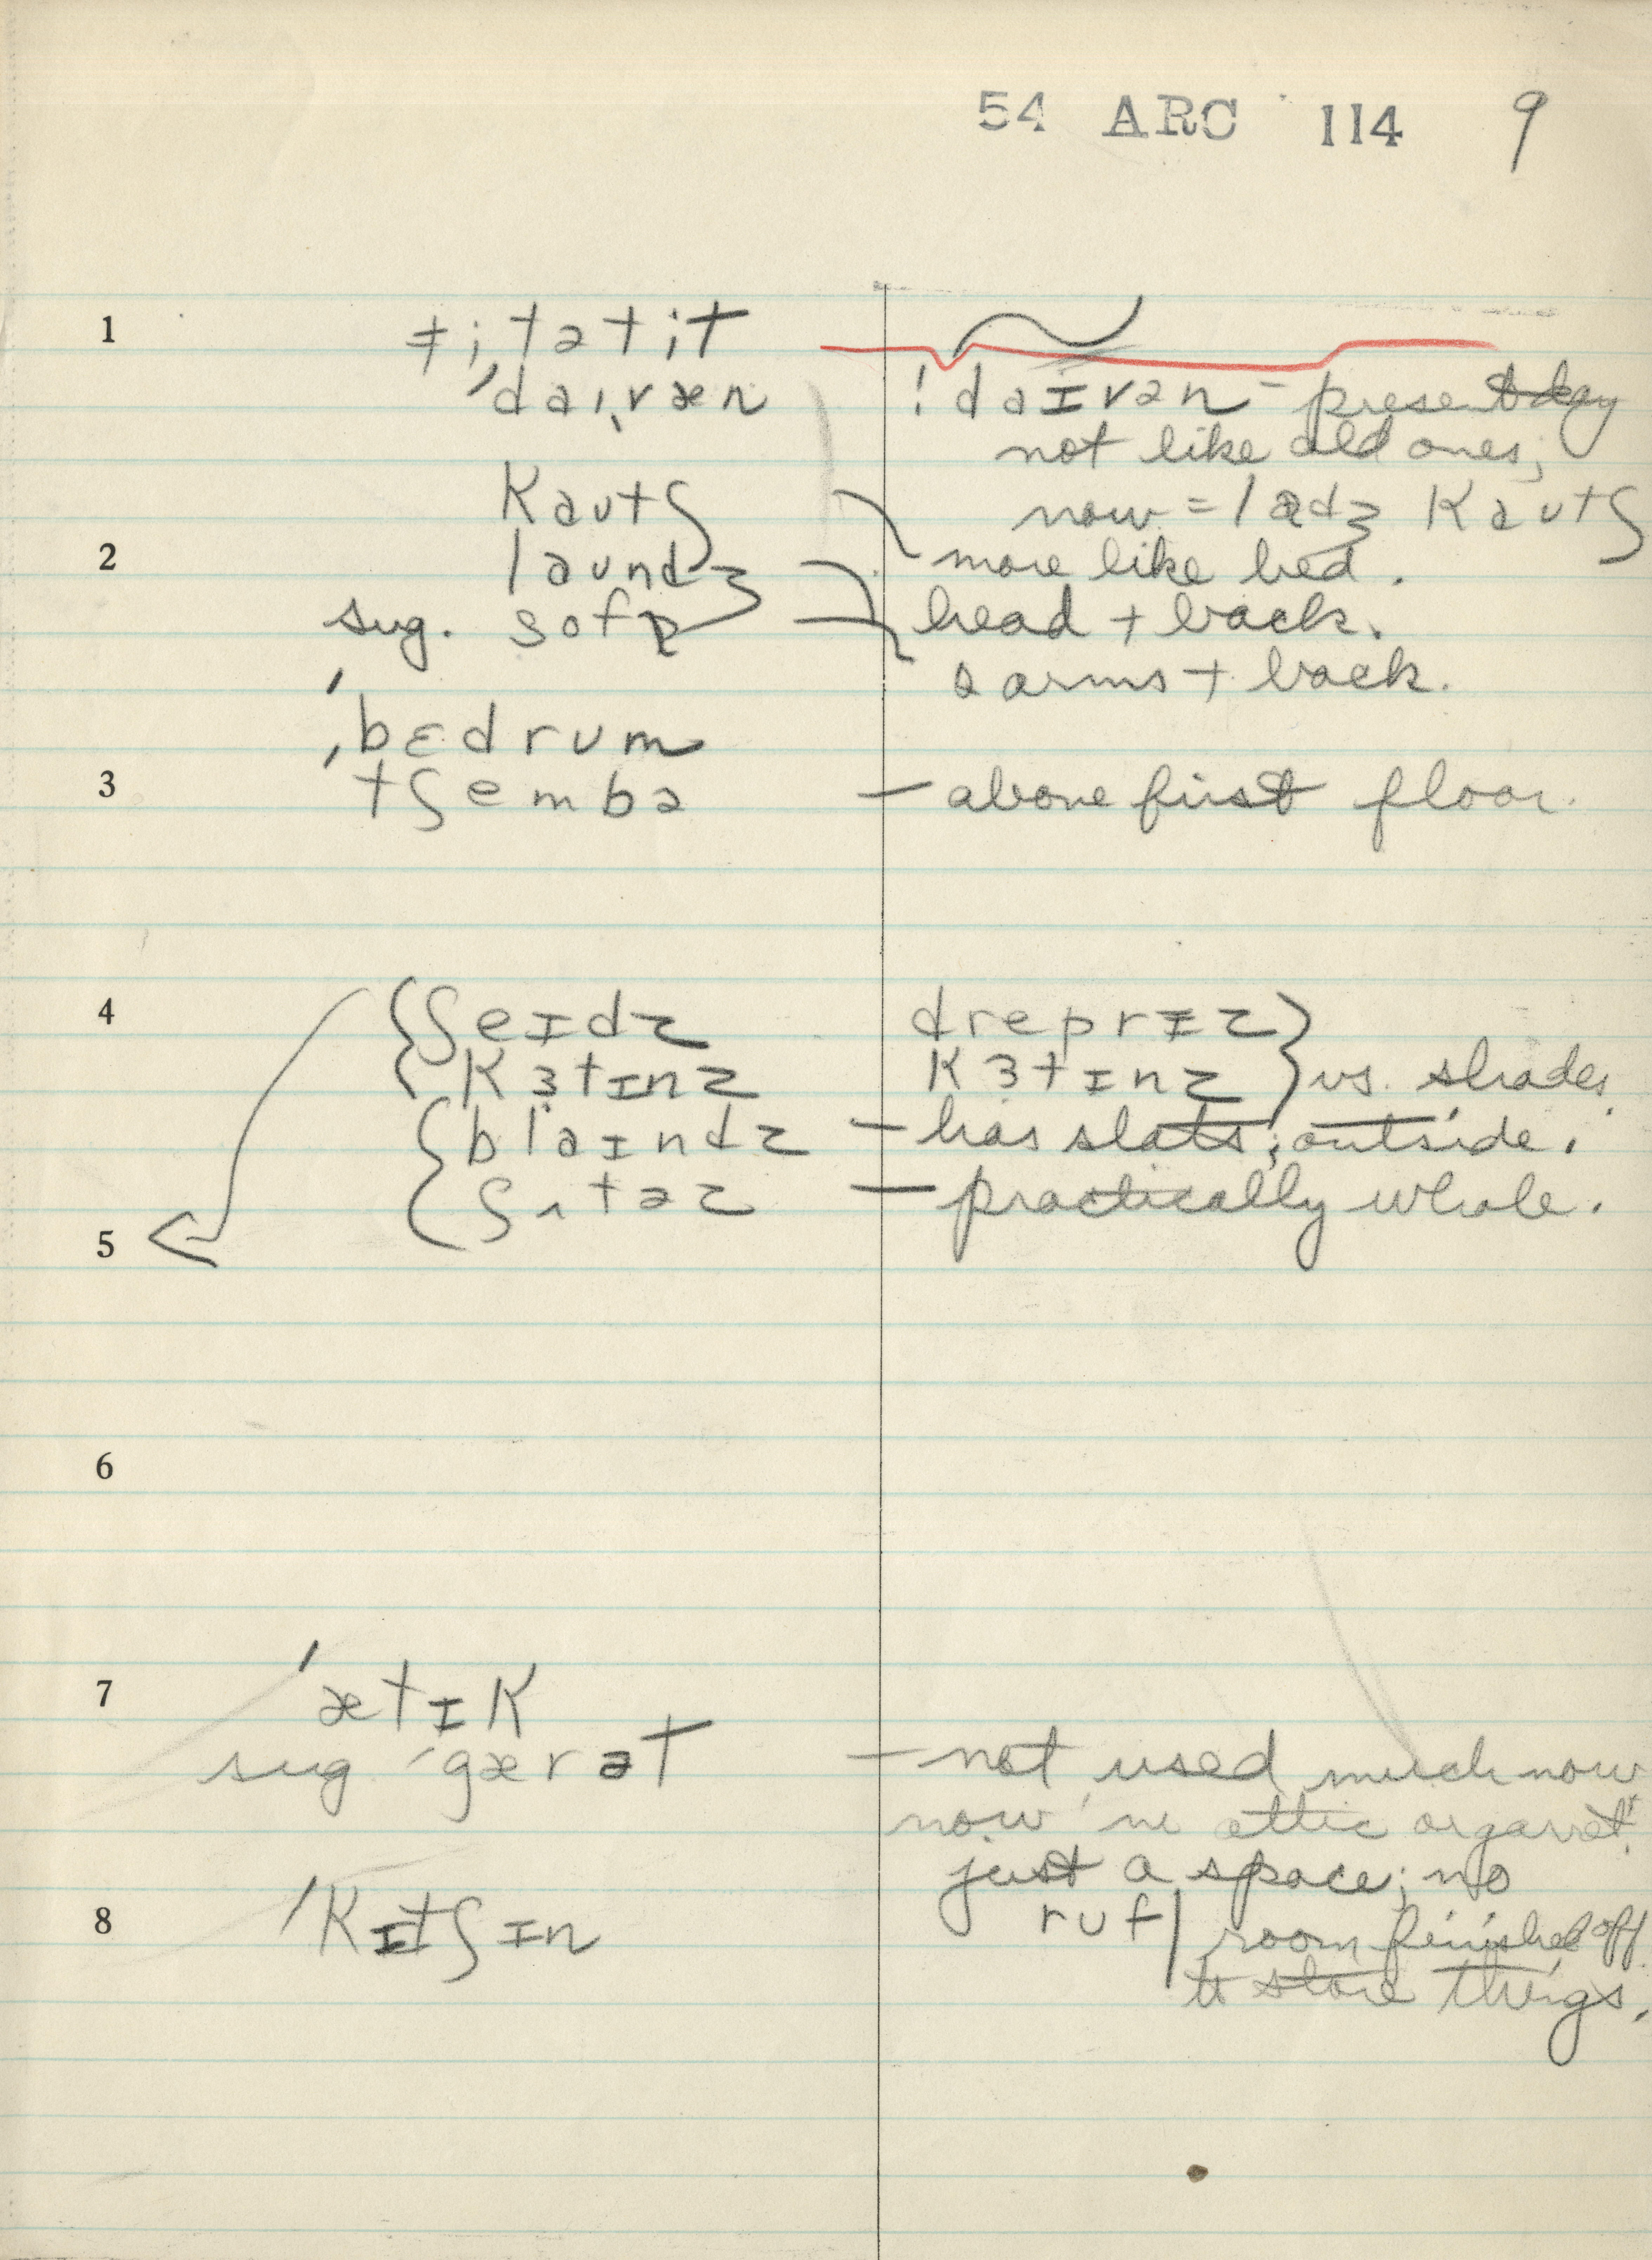 54 ARC 114 9
1 ǂi,tətit
ˈdaɪˌvæn ! daɪvən – present day
not like old ones;
kautʃ now = ladʒ kautʃ
2 laundʒ more like bed.
sug. sofə head + back.
2 arms + back.
ˈbɛdrum
3 tʃembə – above first floor.
4 ʃeɪdz dreprɪz
kɜtɪnz kɜtɪnz vs. shades
blaɪndz – has slats; outside.
ʃʌtəz – practically whole.
5
6
7 ˈætɪk
sug ˈgærət – not used much now
now in attic or garret
just a space; no
8 ˈkɪtʃɪn ruf | room finished off
to store things.